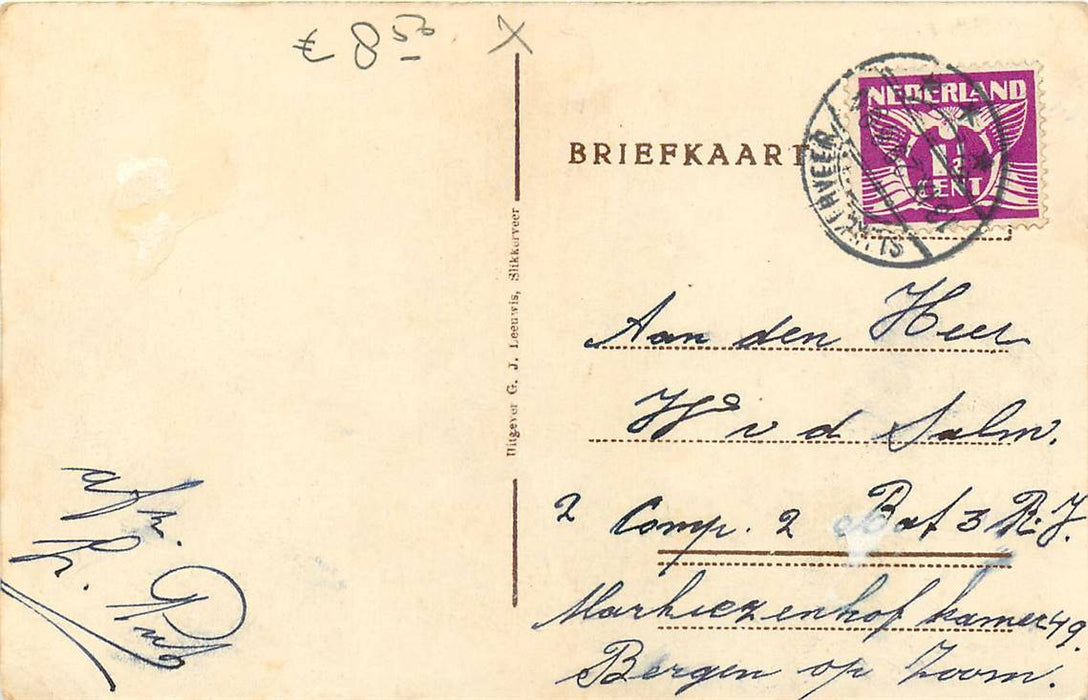 £ 8 50 X
BRIEFKAART
NEDERLAND
1½
CENT
SLIKKERVEER
Uitgever G. J. Leeuwis, Slikkerveer
Aan den Heer
v d Salm.
2 Comp. 2 Bat 3 R.J.
Markiezenhof kamer 49.
Bergen op Zoom.
afz.